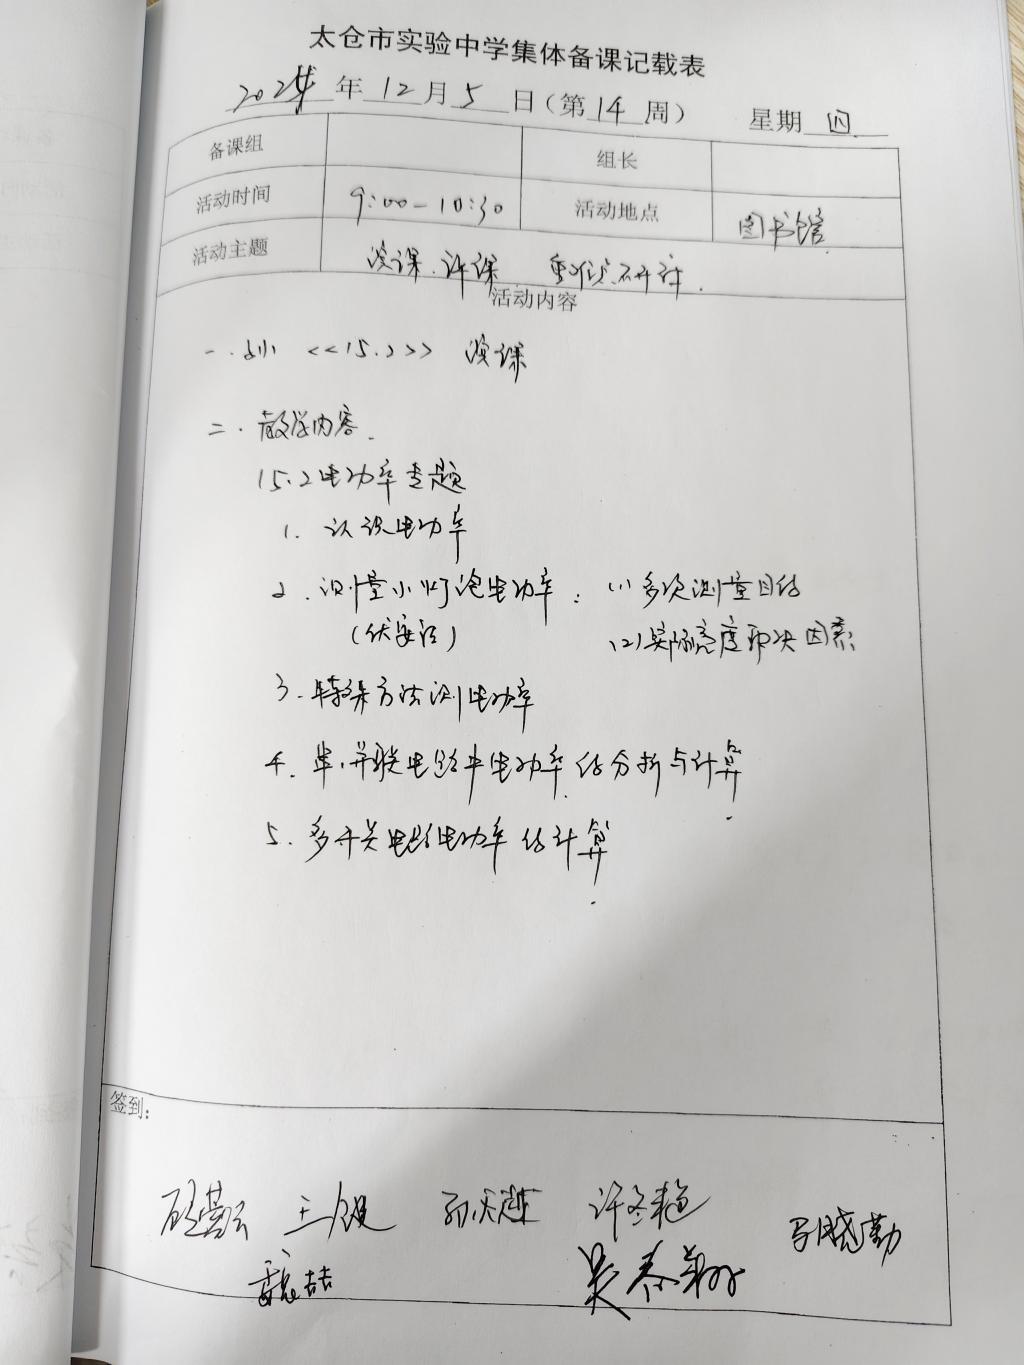 太仓市实验中学集体备课记载表
2024年12月5日（第14周） 星期四
备课组 组长
活动时间 9:00-10:30 活动地点 图书馆
活动主题 演课、评课 重难点研讨.
活动内容
一. <<15.2>> 演课
二. 教学内容.
15.2电功率专题
1. 认识电功率
2. 测量小灯泡电功率： (1)多次测量目的
(伏安法) (2)实际亮度取决因素
3. 特殊方法测电功率
4. 串、并联电路中电功率的分析与计算.
5. 多开关电路电功率的计算.
签到：
许冬艳
魏喆 吴泰翔